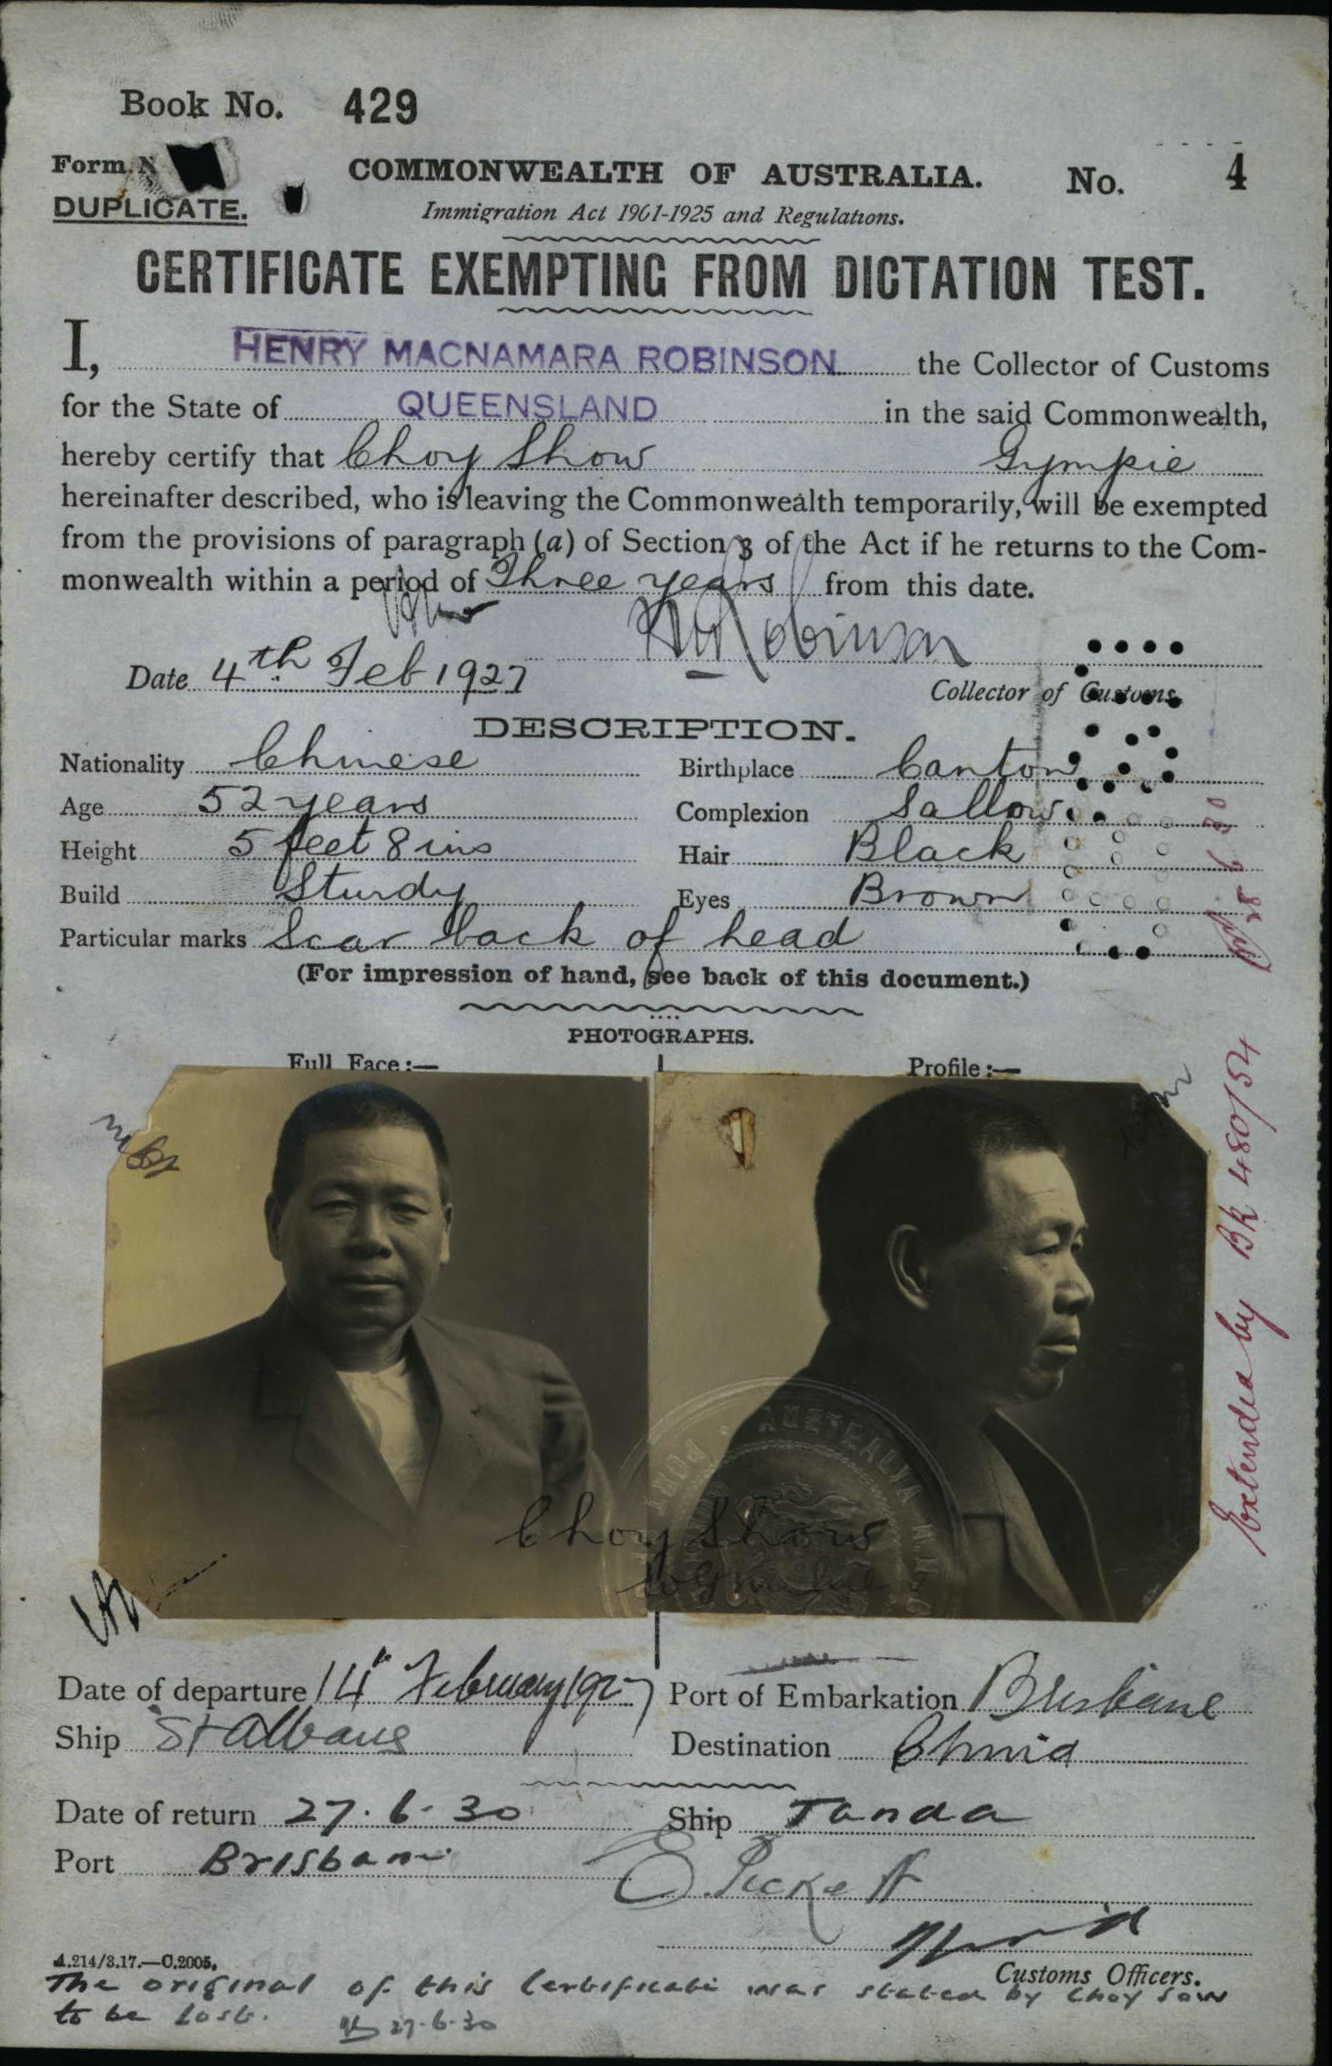 Book No. 429
Form N
COMMONWEALTH OF AUSTRALIA.
No. 4
DUPLICATE.
Immigration Act 1901-1925 and Regulations.
CERTIFICATE EXEMPTING FROM DICTATION TEST.
I, HENRY MACNAMARA ROBINSON the Collector of Customs
for the State of QUEENSLAND in the said Commonwealth,
hereby certify that Choy Show Gympie
hereinafter described, who is leaving the Commonwealth temporarily, will be exempted
from the provisions of paragraph (a) of Section 3 of the Act if he returns to the Com-
monwealth within a period of Three years from this date.
HM Robinson
Date 4th Feb 1927
Collector of Customs.
DESCRIPTION.
Nationality Chinese Birthplace Canton
Age 52 years Complexion Sallow
Height 5 feet 8 ins Hair Black
Build Sturdy Eyes Brown
Particular marks Scar back of head
(For impression of hand, see back of this document.)
PHOTOGRAPHS.
Full Face:—
Profile:—
Extended by Bk 480/54
28 6 30
Choy Show
Date of departure 14" February 1927 Port of Embarkation Brisbane
Ship St Albans Destination China
Date of return 27.6.30 Ship Tanda
Port Brisbane
E. Pickett
Customs Officers.
A.214/3.17.—C.2005.
The original of this Certificate was stated by Choy Sow
to be lost. 27.6.30